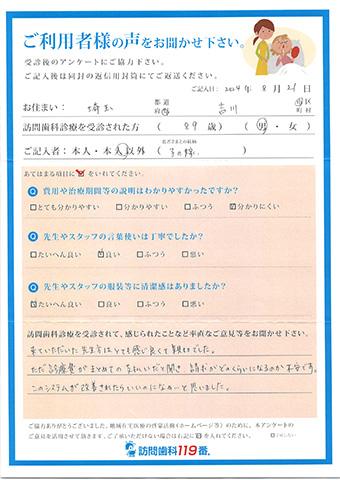 ご利用者様の声をお聞かせ下さい。
受診後のアンケートにご協力下さい。
ご記入後は同封の返信用封筒にてご返送ください。
ご記入日: 2024年 8月 21日
お住まい: 埼玉 都道府県 吉川 市区町村
訪問歯科診療を受診された方 ( 89 歳) ( 男・女 )
ご記入者:本人・本人以外 ( 子の嫁 )
あてはまる項目に✓をいれてください。
Q 費用や治療期間等の説明はわかりやすかったですか?
□とても分かりやすい □分かりやすい □ふつう ☑分かりにくい
Q 先生やスタッフの言葉使いは丁寧でしたか?
□たいへん良い ☑良い □ふつう □悪い
Q 先生やスタッフの服装等に清潔感はありましたか?
☑たいへん良い □良い □ふつう □悪い
訪問歯科診療を受診されて、感じられたことなど率直なご意見等をお聞かせ下さい。
来ていただいた先生方はとても感じ良くて親切でした。
ただ診療費がまとめての支払いだと聞き、請求がどのくらいになるのか不安です。
このシステムが改善されたらいいのになぁーと思いました。
ご協力ありがとうございました。地域在宅医療の啓蒙活動(ホームページ等)のために、本アンケートの
ご意見を活用させて頂きます。ご了承いただけない場合は右記に✓を入れてください。
訪問歯科119番